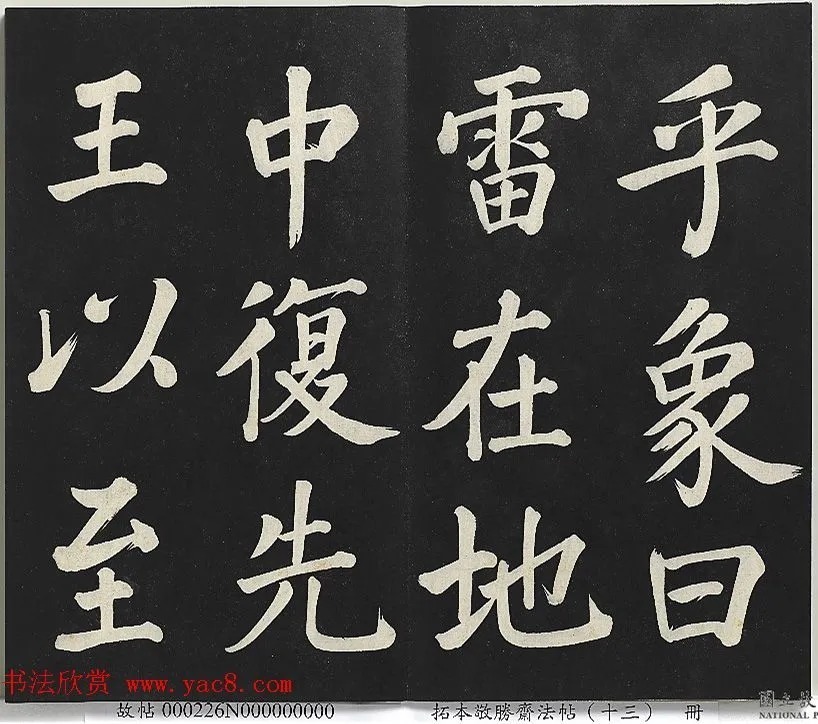 乎象曰
雷在地
中復先
王以至
书法欣赏 www.yac8.com
故帖 000226N000000000
拓本敬勝齋法帖（十三） 冊
NATIONAL P